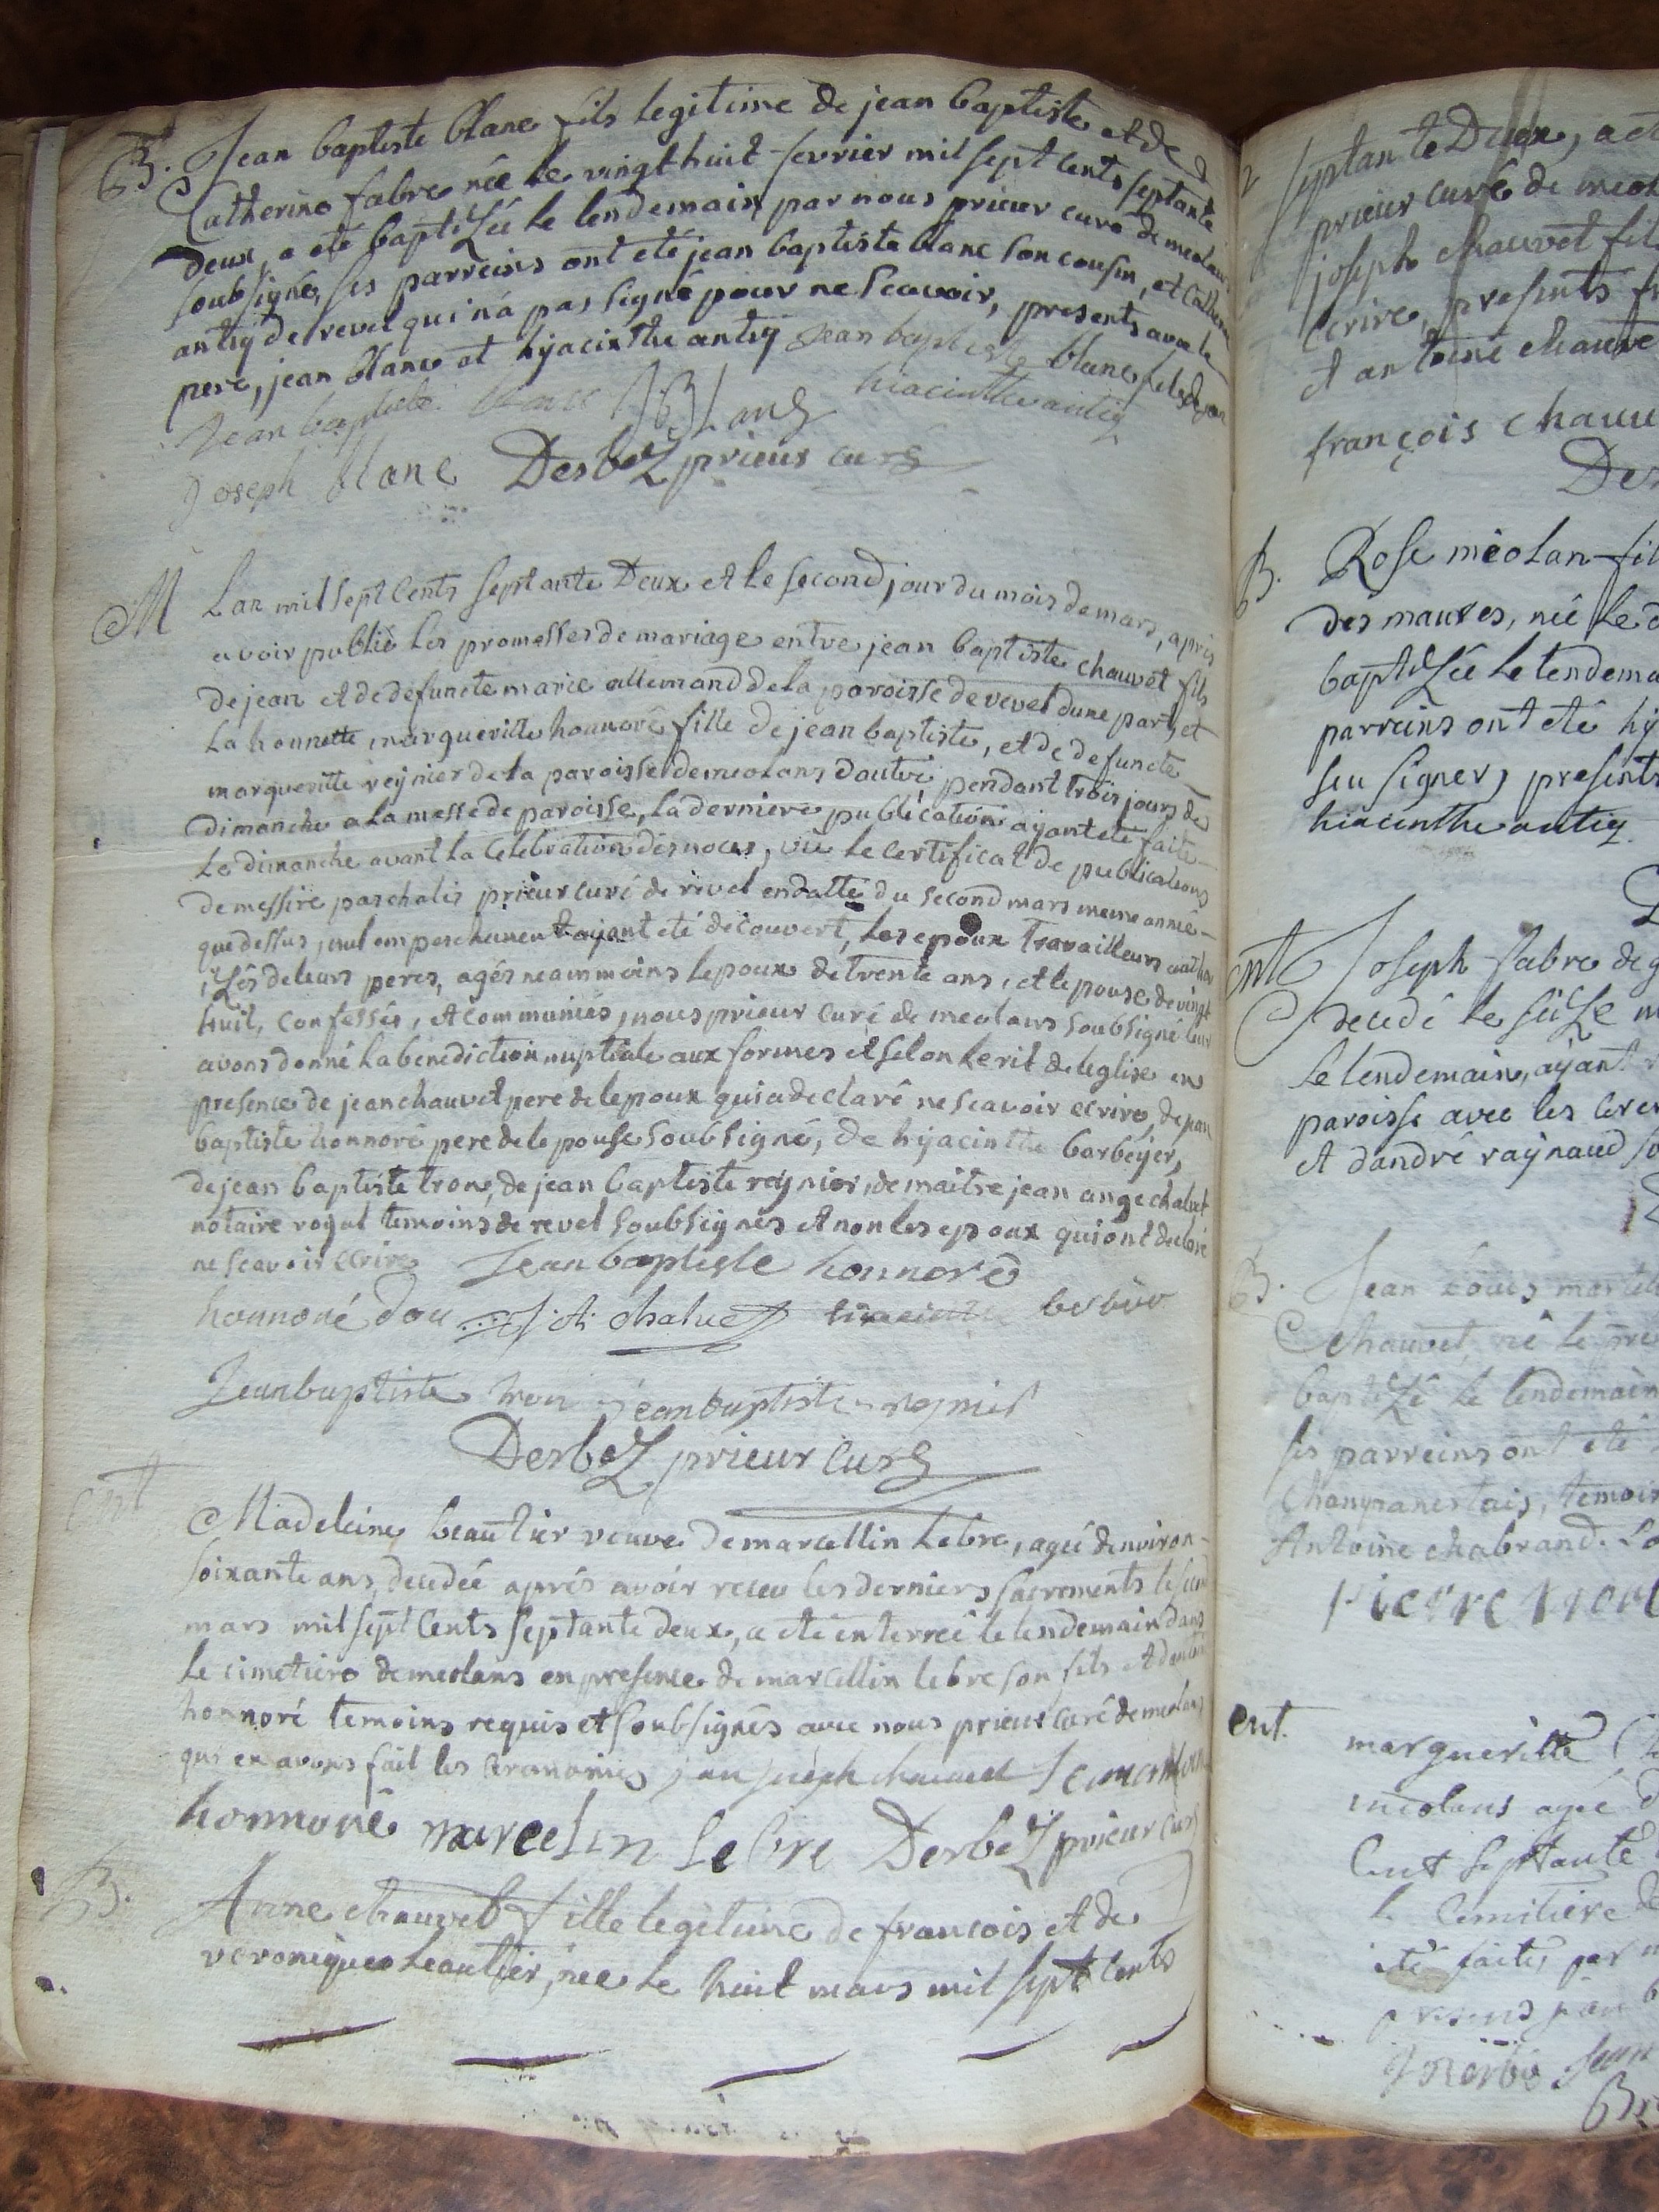 B. Jean baptiste blanc fils legitime de jean baptiste et de
Catherine fabre née le vingt huit fevrier mil sept cents septante
deux, a eté baptiZée le lendemain par nous prieur curé de meolans
soubsigné, ses parreins ont eté jean baptiste blanc son cousin, et Catherine
antiq de revel qui n'a pas signé pour ne scavoir, presents avec le
pere, jean blanc et hyacinthe antiq jean baptiste blanc fils de jean
Jean baptiste blanc JB Lanc hiacinthe antiq
Joseph blanc DerbeZ prieur curé
M Lan mil sept Cents septante Deux et le second jour du mois de mars, apres
avoir publié les promesses de mariage entre jean baptiste chauvet fils
de jean et de defuncte marie allemand de la paroisse de revel dune part, et
la honnette margueritte honnoré fille de jean baptiste, et de defuncte
margueritte reynier de la paroisse de meolans dautre, pendant trois jours de
dimanche a la messe de paroisse, la derniere publication ayant eté faite
le dimanche avant la Celebration des noces, vû le certificat de publications
de messire paschalis prieur curé de revel en datte du second mars meme année
que dessus, nul empeschement ayant eté découvert, les epoux travailleurs authori
iZés de leurs peres, agés neammoins lepoux de trente ans, et lepouse de vingt
huit, confessés, et communiés, nous prieur curé de meolans soubsigné leur
avons donné la benediction nuptiale aux formes et selon le rit de leglise en
presence de jean chauvet pere de lepoux qui a declaré ne scavoir ecrire, de jean
baptiste honnoré pere de lepouse soubsigné, de hyacinthe barbeyer,
de jean baptiste tron, de jean baptiste reynier, de maitre jean ange chalvet
notaire royal temoins de revel soubsignés et non les epoux qui ont declaré
ne scavoir ecrire Jean baptiste honnoré
honnoré J. A. chalvet
Jean baptiste tron jean baptiste reynier
DerbeZ prieur curé
ent Madeleine beautier veuve de marcellin lebre, agée denviron
soixante ans, decedée aprés avoir receu les derniers sacrements le
mars mil sept Cents septante deux, a eté enterreé le lendemain dans
le cimetiere de meolans en presence de marcellin lebre son fils et
honnoré temoins requis et soubsignés avec nous prieur curé de meolans
qui en avons fait les ceremonies jean joseph chauvet
honnoré marcelin lebre DerbeZ prieur curé
B. Anne chauvet fille legitime de francois et de
veronique beautier, née le huit mars mil sept Cents
septante Deux, a eté
prieur curé de meol
joseph chauvet fil
Ecrire, presents fr
et antoine chauve
françois chauv
Der
B. Rose méolan fil
des maures, née le
baptiZée le lendema
parreins ont eté hy
seu signer, presents
hiacinthe antiq.
ent Joseph fabre de
decedé le séiZe m
le lendemain, ayant
paroisse avec les cere
et dandré raynaud
B. Jean Louis martel
Chauvet, né le
baptiZé le lendemain
ses parreins ont eté
temoin
Antoine chabrand.
Pierre
ent. margueritte
meolans agée d
Cent septante
le Cimitiere de
eté faites par
Jean